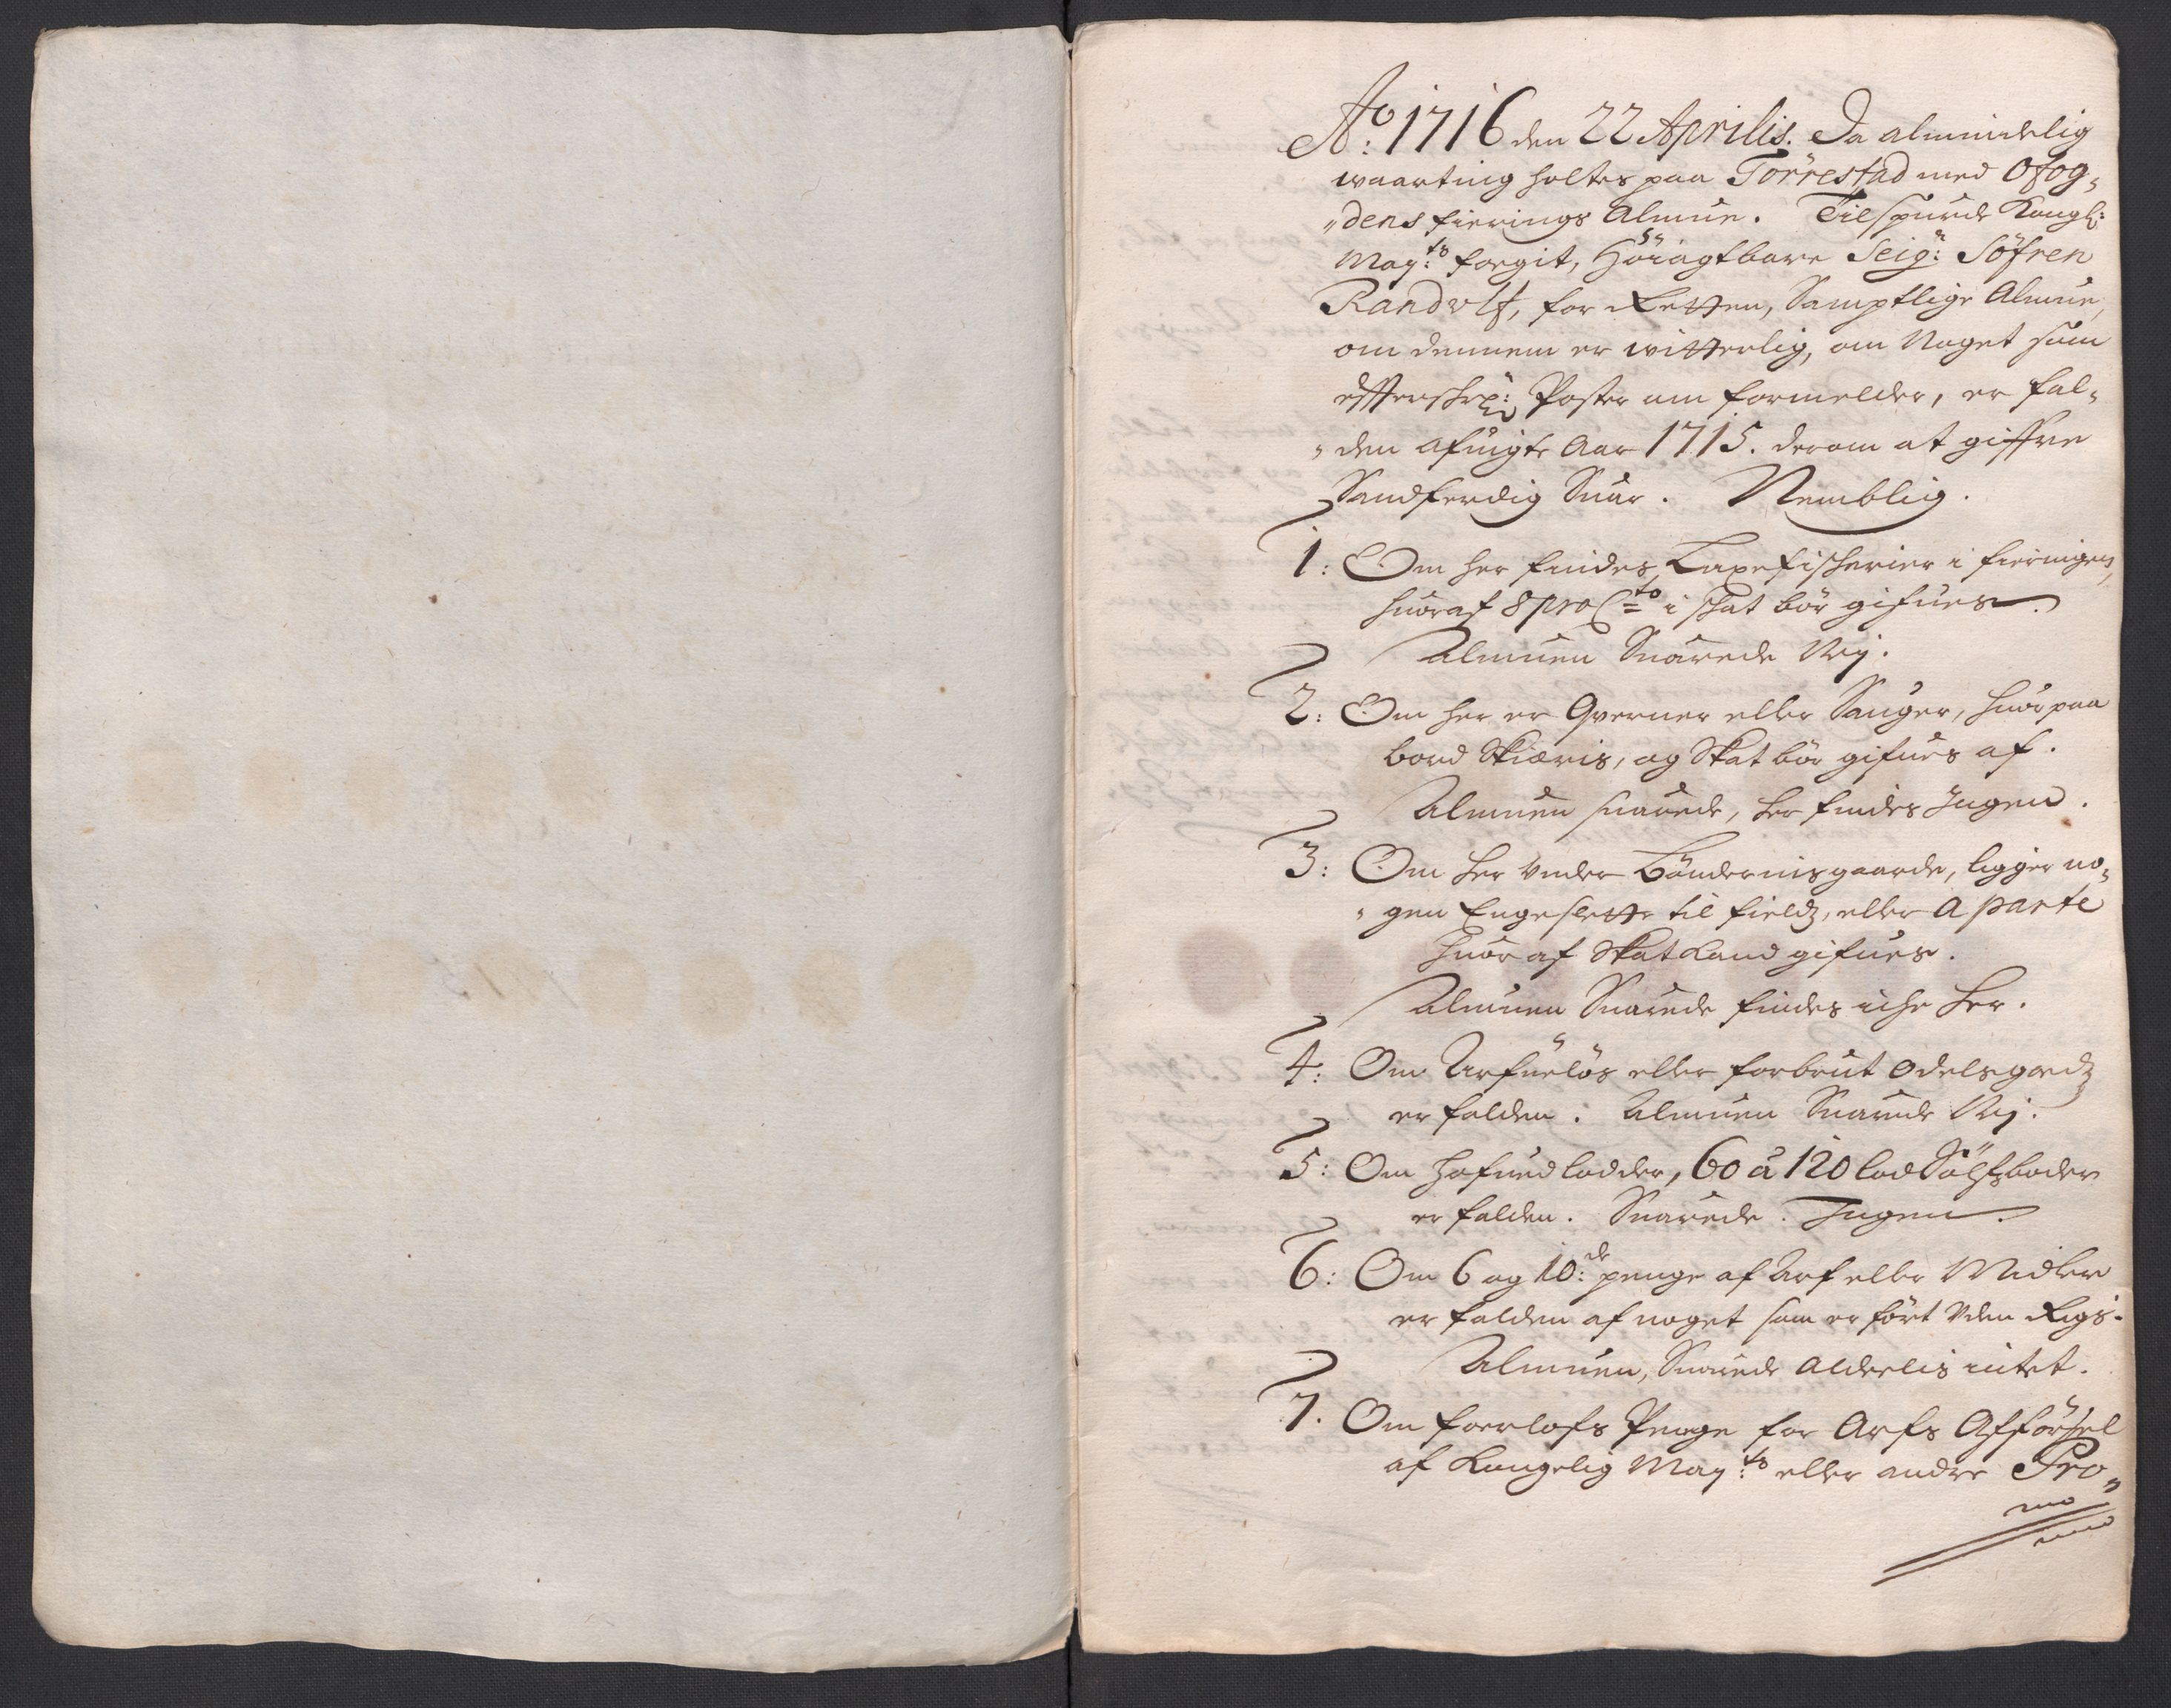 Ao: 1716 den 22 Aprilis. Da almindelig
waarting holtes paa Törrestad med Ofog„
„dens fierings Almue. Tilspurde Kongl:
May:ts fougit, Höiagtbare Seig:r Söfren
Randulf, for Retten, Samptlige Almue,
om dennem er witterlig, om Noget som
effterschr: Poster om formelder, er fal„
„den afuigte Aar 1715. derom at giffue
Sandferdig Suar. Nemblig.
1: Om her findes Laxefischerier i fieringen,
huoraf 8 pro Cto i schat bör gifues.
Almuen Suarede Nej.
2: Om her er Qverner eller Sauger, huorpaa
bord Skiæris, og Skat bör gifues af.
Almuen suarede, her findes Ingen.
3: Om her under Böndernis gaarde, ligger no„
„gen Engeslette til fields, eller a parte
huor af Skat Kand gifues.
Almuen Suarede findes iche her.
4: Om Arfueløs eller forbrut Odelsgods
er falden. Almuen Suarede Nej.
5: Om hofuedlodder, 60 à 120 lod Sölfsboder
er falden. Suarede. Ingen.
6: Om 6 og 10:de penge af Arf eller Midler
er falden af noget som er fört uden Rigs.
Almuen, Suarede Alderlis intet.
7. Om forlofs Penge for Arfs Afförsel
af Kongelig May:ts eller andre Pro„